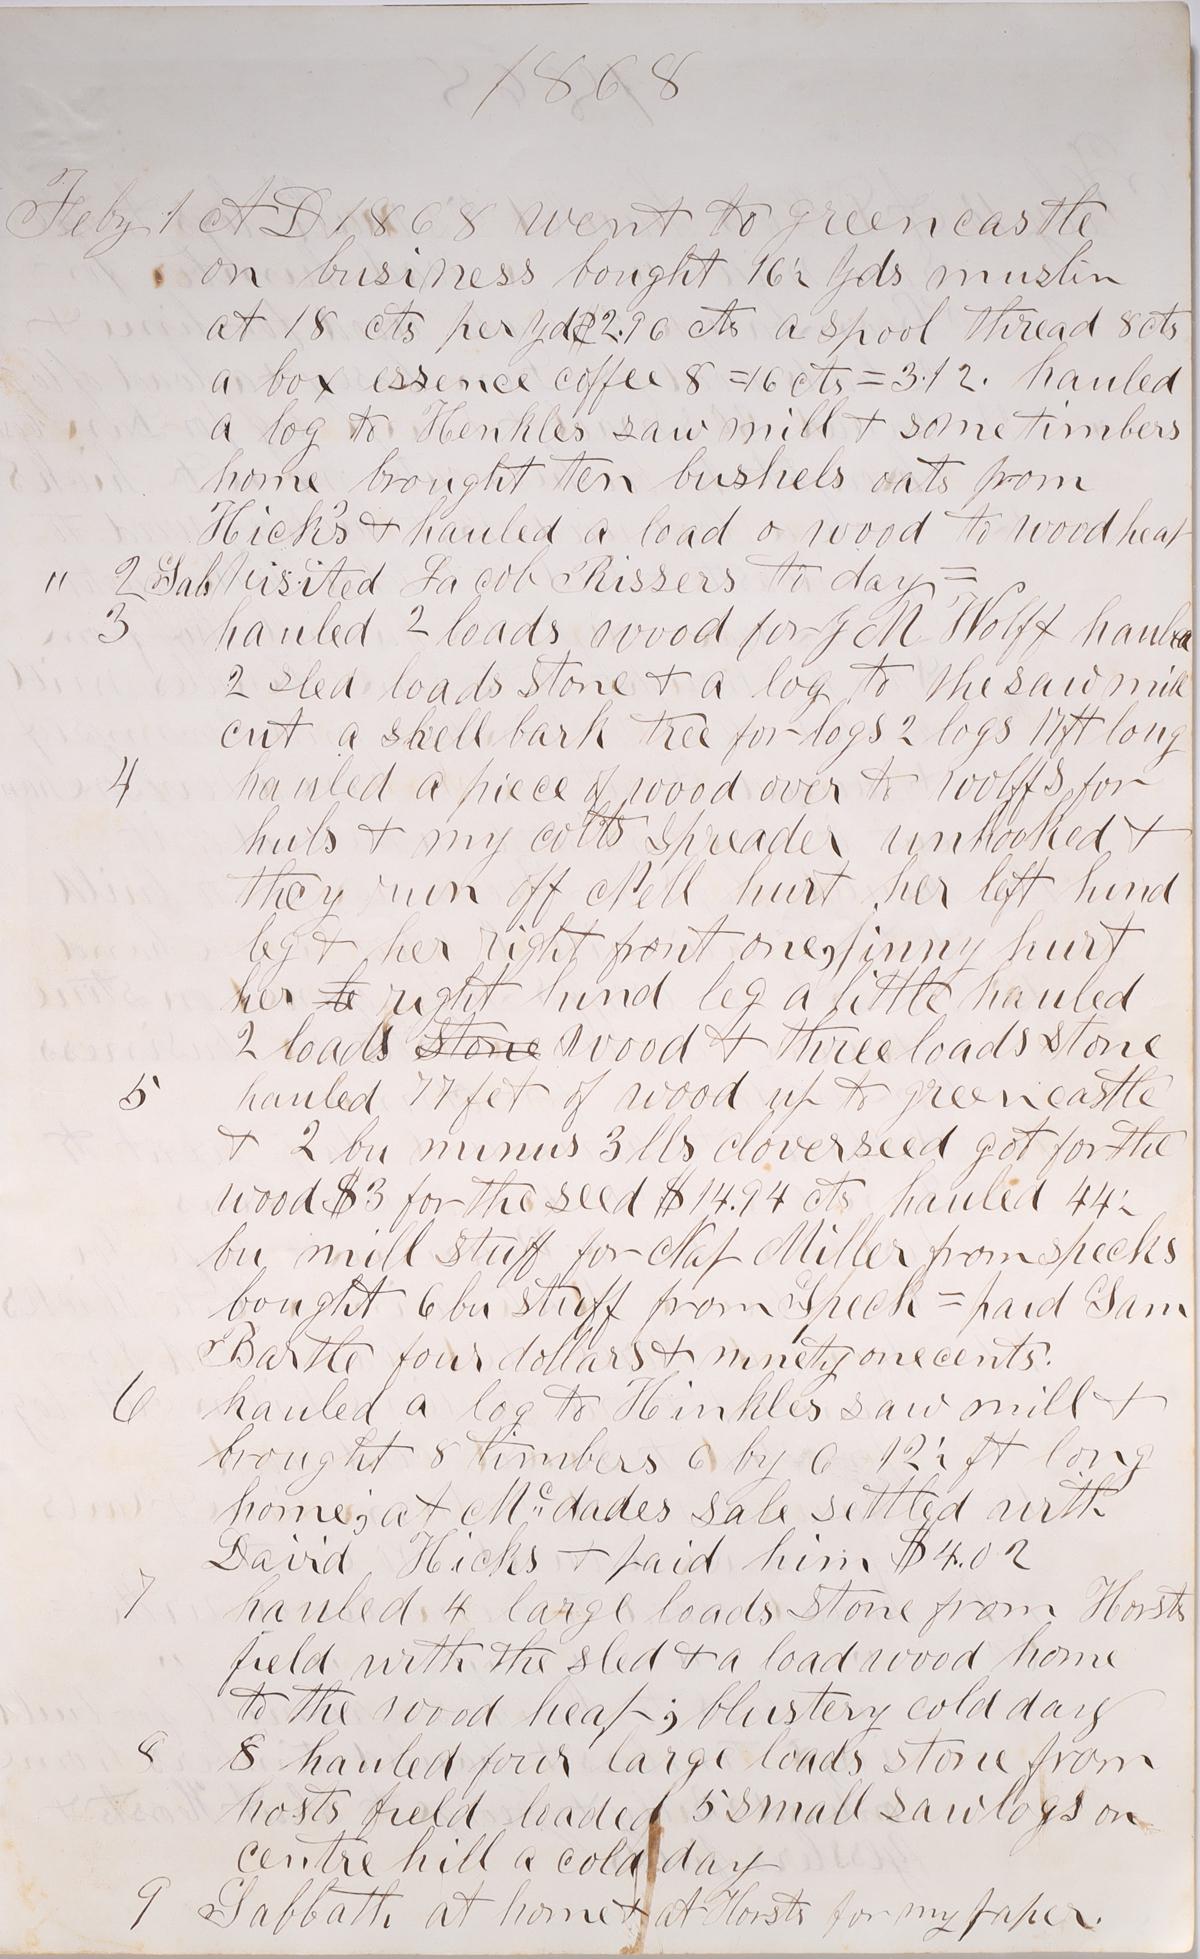 1868
Feby 1 A D 1868 went to greencastle
on business bought 16½ yds muslin
at 18 cts per yd $2.96 cts a spool thread 8 cts
a box essence coffee 8 =16 cts = 3.12. hauled
a log to Henkles saw mill + some timbers
home brought ten bushels oats from
Hicks + hauled a load o wood to wood heap
" 2 Sab visited Jacob Rissers to day =
3 hauled 2 loads wood for J M Wolff hauled
2 sled loads stone + a log to the saw mill
cut a shell bark tree for logs 2 logs 17 ft long
4 hauled a piece of wood over to wolffs for
hubs + my colts spreader unhooked +
they run off Nell hurt her left hind
leg + her right front one, jinny hurt
her to right hind leg a little hauled
2 loads stone wood + three loads stone
5 hauled 77 fet of wood up to greencastle
+ 2 bu minus 3 lbs cloverseed got for the
wood $3 for the seed $14.94 cts hauled 44½
bu mill stuff for Nap Miller from specks
bought 6 bu stuff from Speck = paid Sam
Bartle four dollars + ninety one cents.
6 hauled a log to Hinkles saw mill +
brought 8 timbers 6 by 6 12½ ft long
home; at Mc dades sale settled with
David Hicks + paid him $4.02
7 hauled 4 large loads stone from Horsts
field with the sled + a load wood home
to the wood heap; blustery cold day
8 8 hauled four large loads stone from
hosts field loaded 5 small saw logs on
centre hill a cold day
9 Sabbath at home + at Horsts for my paper.